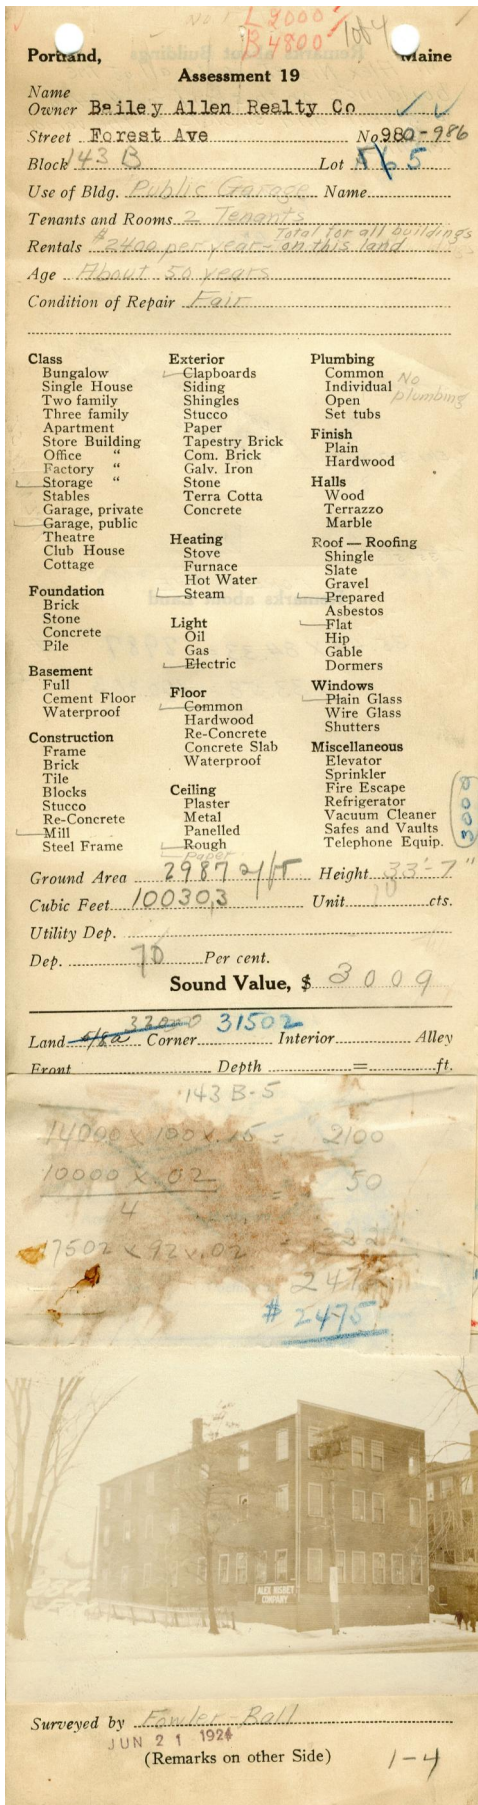 No 1 L 2000
B 4800 1 of 4
Portland, Maine
Assessment 19
Name
Owner Bailey Allen Realty Co
Street Forest Ave No. 980-986
Block 143 B Lot 5
Use of Bldg. Public Garage Name
Tenants and Rooms 2 Tenants
Total for all buildings
Rentals $2400 per year - on this land
Age About 50 years
Condition of Repair Fair
Class
Bungalow
Single House
Two family
Three family
Apartment
Store Building
Office "
Factory "
Storage "
Stables
Garage, private
Garage, public
Theatre
Club House
Cottage
Foundation
Brick
Stone
Concrete
Pile
Basement
Full
Cement Floor
Waterproof
Construction
Frame
Brick
Tile
Blocks
Stucco
Re-Concrete
Mill
Steel Frame
Exterior
Clapboards
Siding
Shingles
Stucco
Paper
Tapestry Brick
Com. Brick
Galv. Iron
Stone
Terra Cotta
Concrete
Heating
Stove
Furnace
Hot Water
Steam
Light
Oil
Gas
Electric
Floor
Common
Hardwood
Re-Concrete
Concrete Slab
Waterproof
Ceiling
Plaster
Metal
Panelled
Rough
Paper
Plumbing
Common
Individual
Open
Set tubs
No
plumbing
Finish
Plain
Hardwood
Halls
Wood
Terrazzo
Marble
Roof — Roofing
Shingle
Slate
Gravel
Prepared
Asbestos
Flat
Hip
Gable
Dormers
Windows
Plain Glass
Wire Glass
Shutters
Miscellaneous
Elevator
Sprinkler
Fire Escape
Refrigerator
Vacuum Cleaner
Safes and Vaults
Telephone Equip.
3000
Ground Area 2987 Height 33'-7"
Cubic Feet 100303 Unit 10 cts.
Utility Dep.
Dep. 70 Per cent.
Sound Value, $ 3009
32000 31502
Land Corner Interior Alley
Front Depth = ft.
143 B-5
14000 x 100 x .15 = 2100
10000 x .02 = 50
4
17502 x 92 x .02
$2475
ALEX BISBET
COMPANY
Surveyed by Fowler - Ball
JUN 21 1924
(Remarks on other Side) 1-4